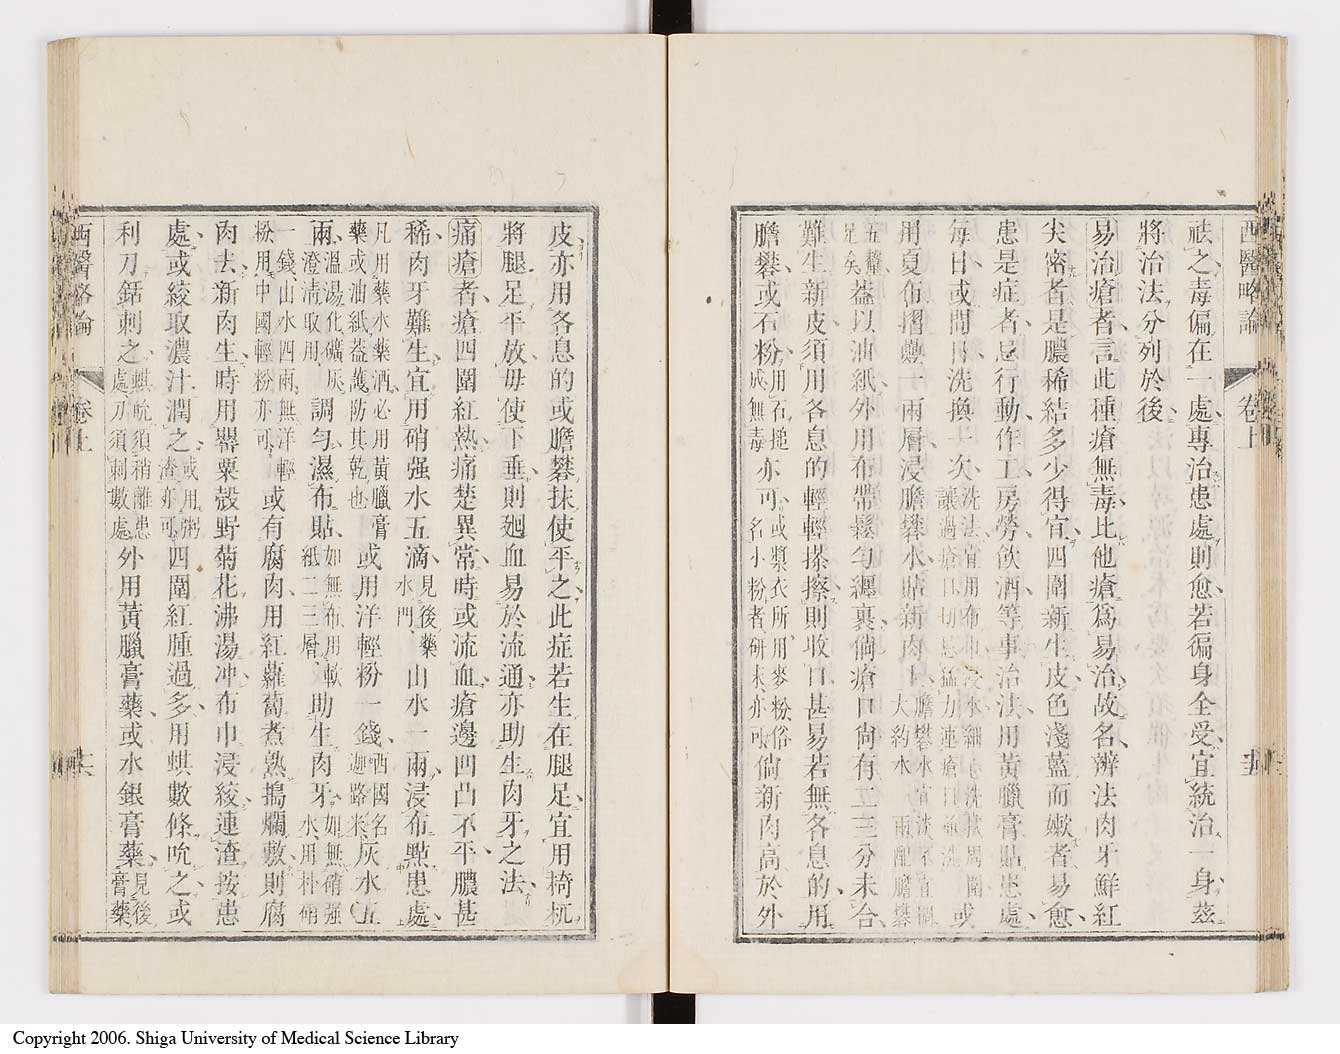 西醫略論 卷上
祛之毒偏在一處專治患處則愈若徧身全受宜統治一身茲
將治法分列於後
易治瘡者言此種瘡無毒比他瘡爲易治故名辨法肉牙鮮紅
尖密者是膿稀結多少得宜四圍新生皮色淺藍而嫩者易愈
患是症者忌行動作工房勞飲酒等事治法用黃臘膏貼患處
每日或間日洗換一次 或
用夏布摺疊一兩層浸膽礬水貼新肉上
五層足矣葢以油紙外用布帶鬆勻纏裹倘瘡口尚有二三分未合
難生新皮須用各息的輕輕搽擦則收口甚易若無各息的用
膽礬或石粉用石搥成無毒亦可或漿衣所用麥粉俗名小粉者研末亦可倘新肉高於外
皮亦用各息的或膽礬抹使平之此症若生在腿足宜用椅杌
將腿足平放毋使下垂則廻血易於流通亦助生肉牙之法
痛瘡者瘡四圍紅熱痛楚異常時或流血瘡邊凹凸不平膿甚
稀肉牙難生宜用硝强水五滴見後藥水門山水一兩浸布㸃患處
凡用藥水藥酒必用黃臘膏藥或油紙葢護防其乾也或用洋輕粉一錢西國名迦路米灰水五
兩溫湯化礦灰澄清取用調勻濕布貼如無布用軟紙二三層助生肉牙如無硝强水用朴硝
一錢山水四兩無洋輕粉用中國輕粉亦可或有腐肉用紅蘿蔔煮熟搗爛敷則腐
肉去新肉生時用罌粟殼野菊花沸湯冲布巾浸絞連渣按患
處或絞取濃汁潤之或用粥渣亦可四圍紅腫過多用蜞數條吮之或
利刀銛刺之蜞吮須稍離患處刀須刺數處外用黃臘膏藥或水銀膏藥見後膏藥
西醫略論 卷上
Copyright 2006. Shiga University of Medical Science Library